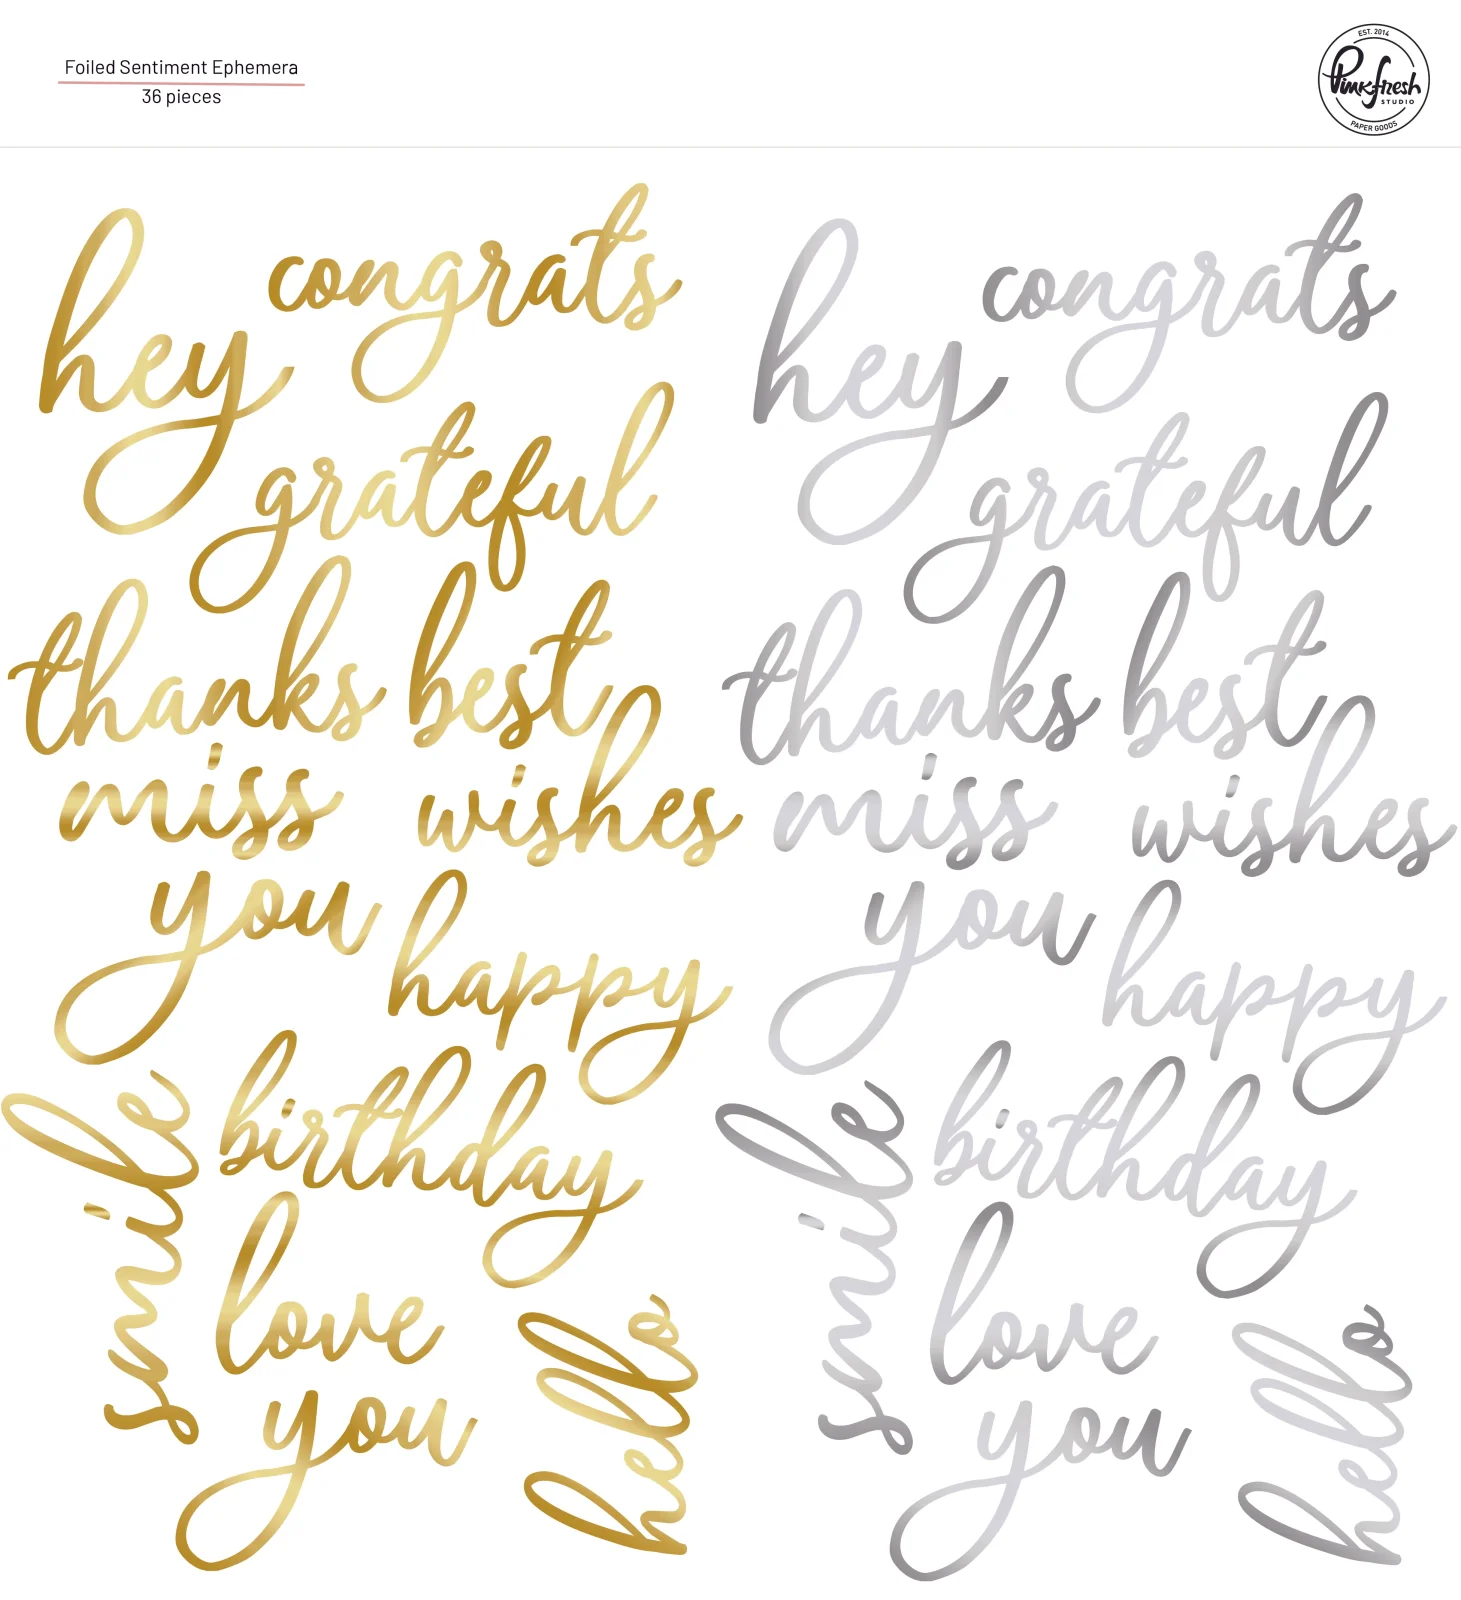 Foiled Sentiment Ephemera
36 pieces
EST. 2014
Pinkfresh
STUDIO
PAPER GOODS
hey
congrats
grateful
thanks
best
miss
wishes
you
happy
birthday
smile
love
you
hello
hey
congrats
grateful
thanks
best
miss
wishes
you
happy
birthday
smile
love
you
hello